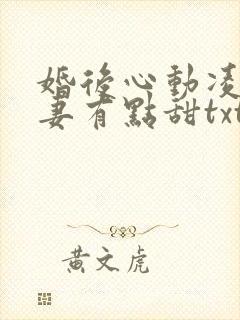 婚後心動凌
妻有點甜txt
黃文虎